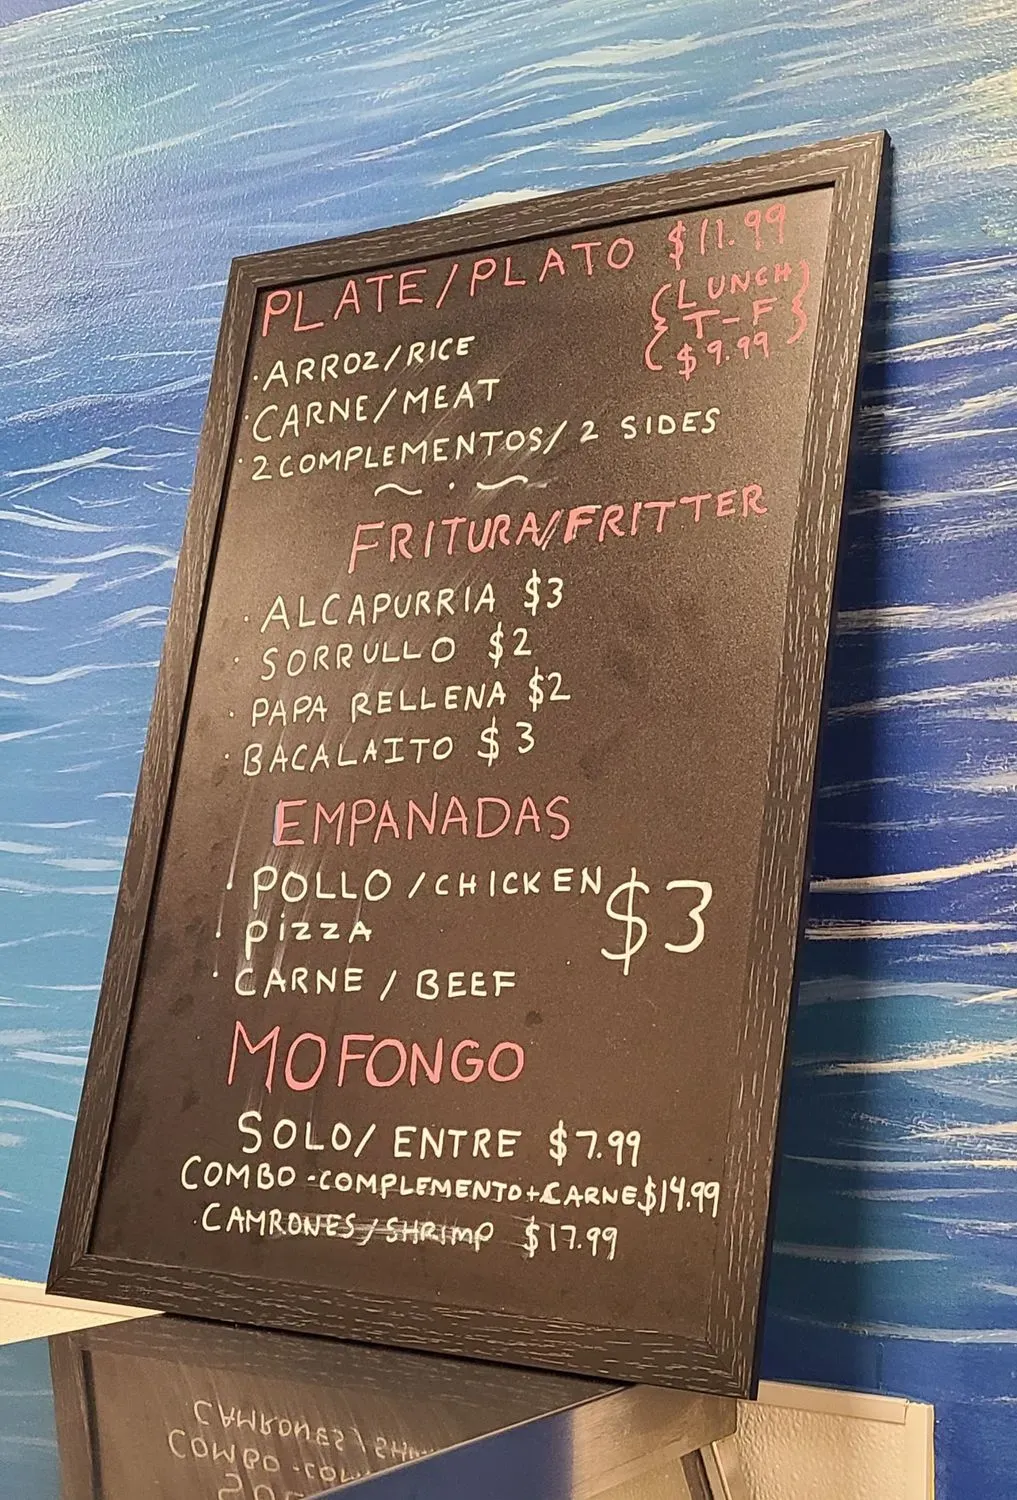 PLATE/PLATO $11.99
(LUNCH)
{T-F}
($9.99)
·ARROZ/RICE
·CARNE/MEAT
·2 COMPLEMENTOS/ 2 SIDES
~ · ~
FRITURA/FRITTER
· ALCAPURRIA $3
· SORRULLO $2
· PAPA RELLENA $2
· BACALAITO $3
EMPANADAS
· POLLO /CHICKEN
$3
· PIZZA
· CARNE / BEEF
MOFONGO
SOLO/ ENTRE $7.99
COMBO -COMPLEMENTO+CARNE $14.99
·CAMRONES/SHRIMP $17.99
CAMRONES/SH
COMBO -COM
SO